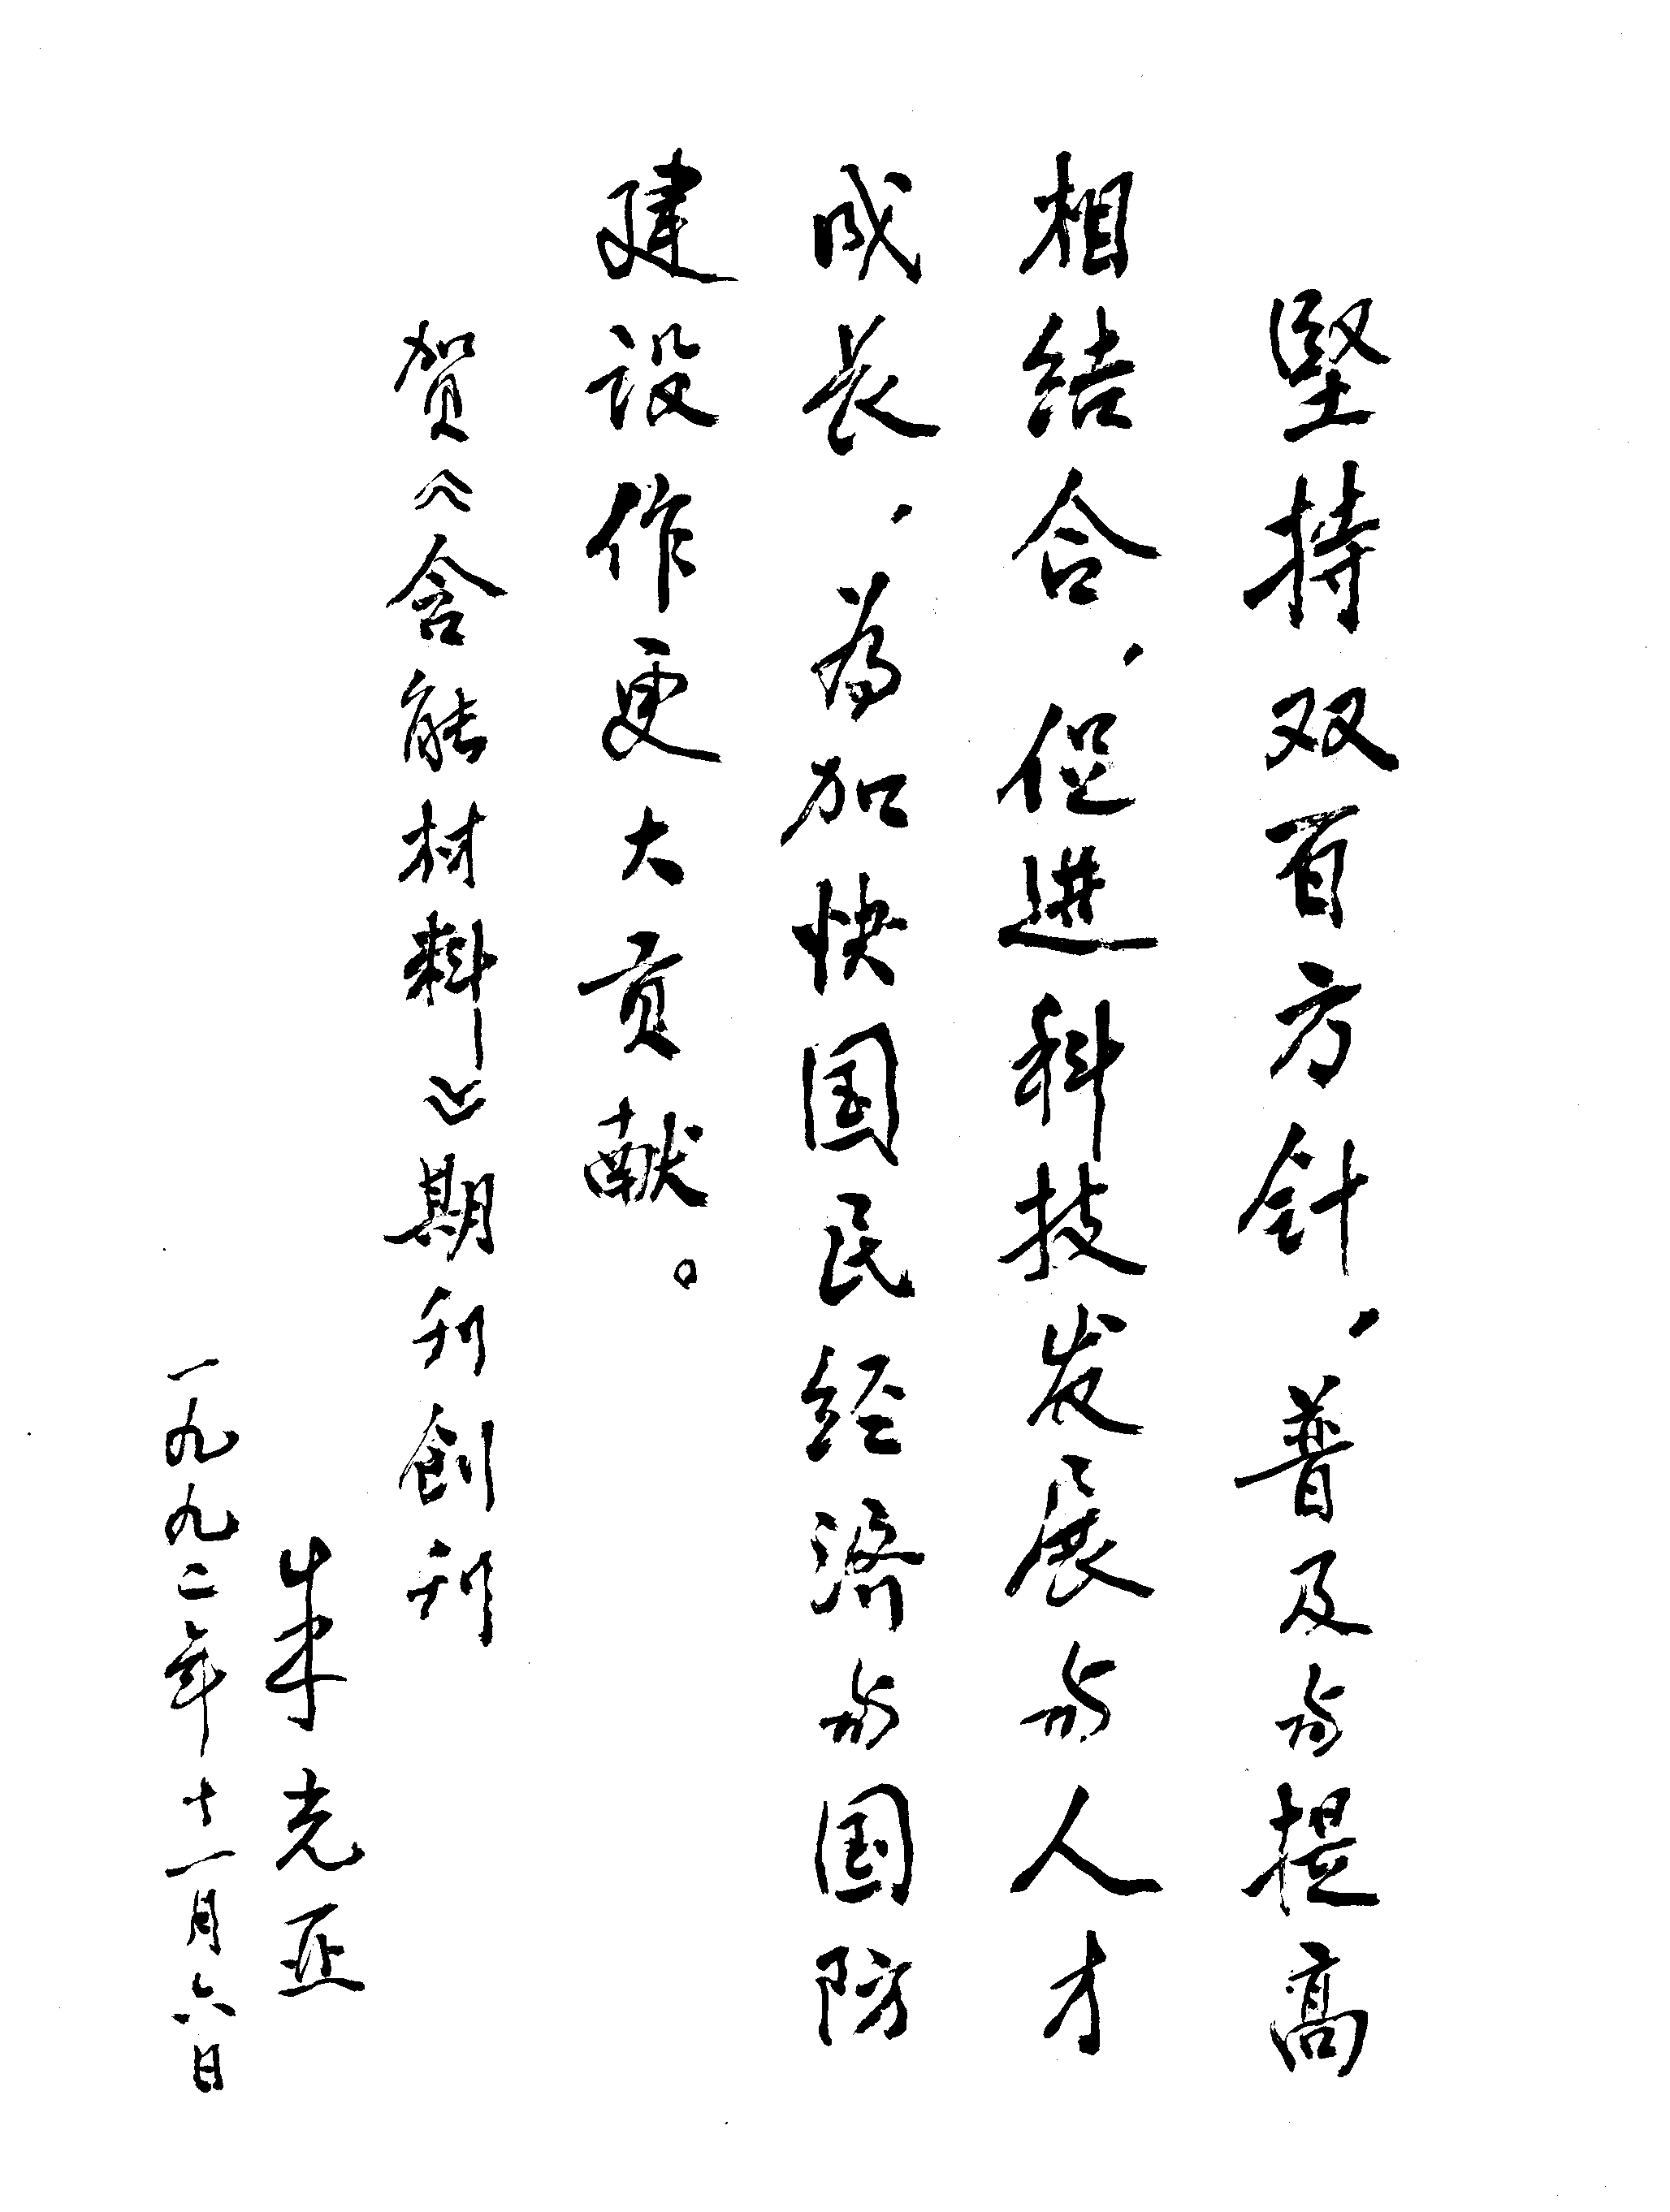 坚持双百方针，普及与提高
相结合，促进科技发展与人才
成长，为加快国民经济与国防
建设作更大贡献。
贺《含能材料》期刊创刊
朱光亚
一九九二年十一月六日